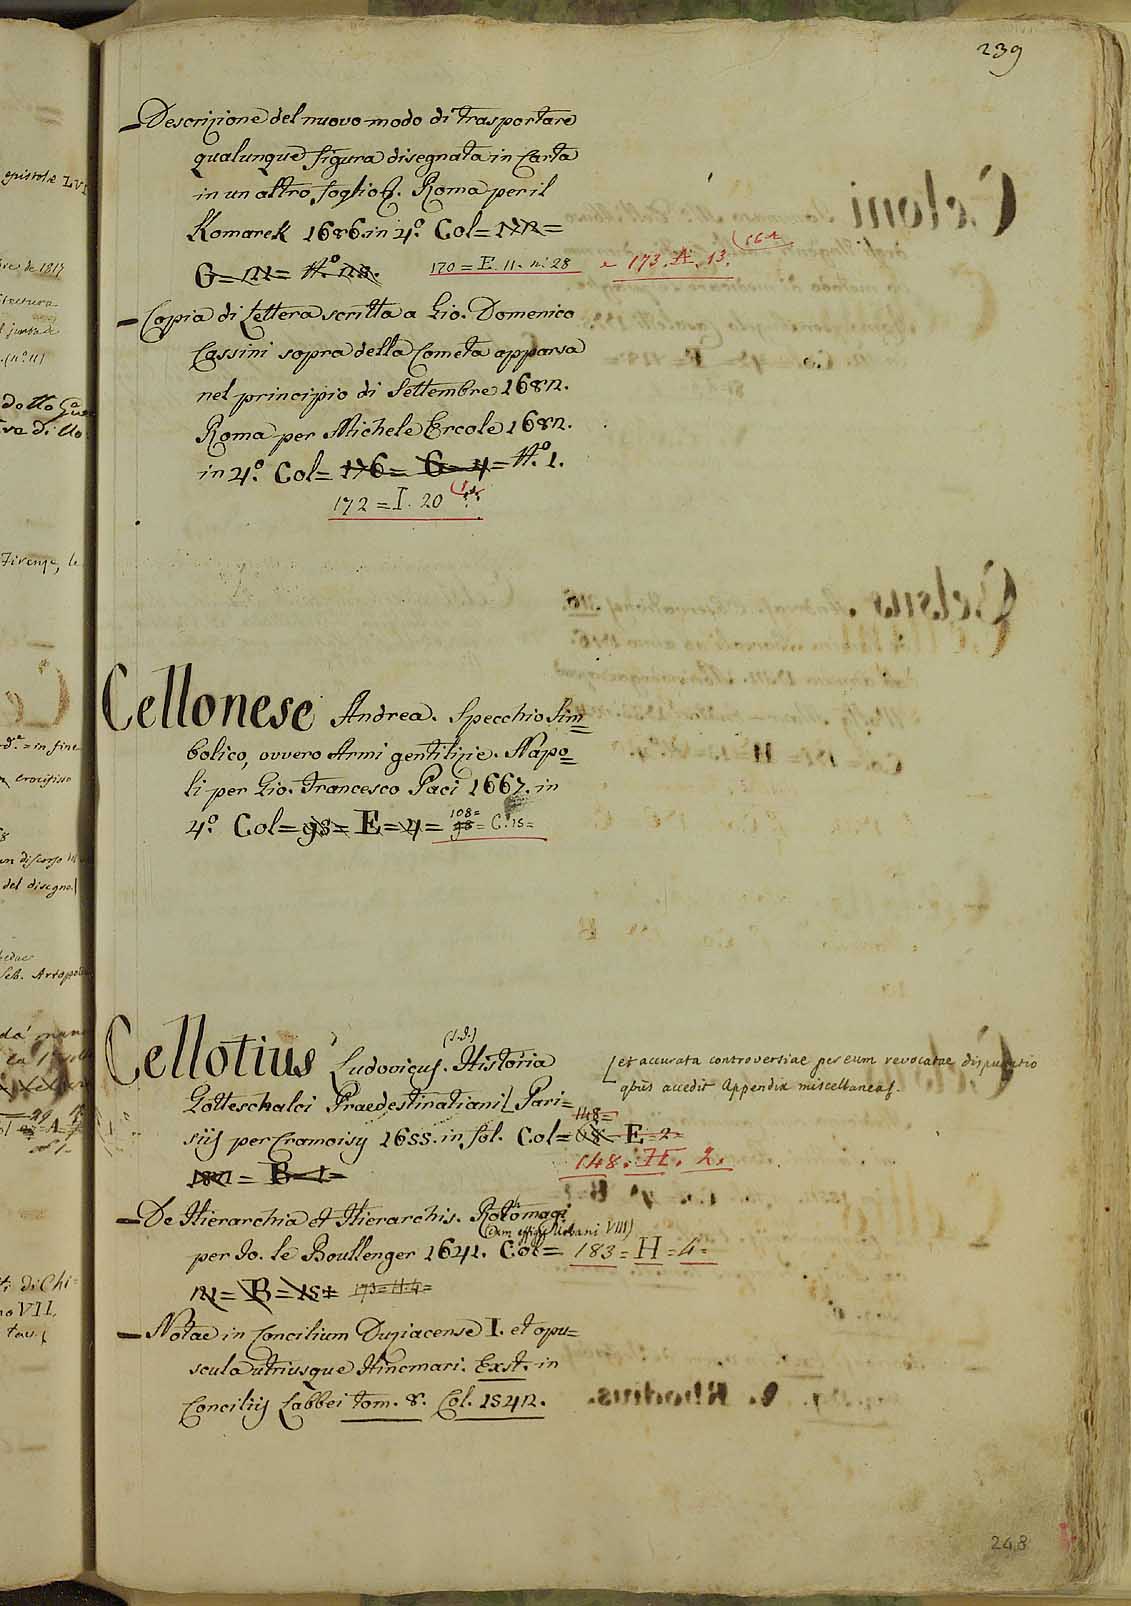 239
— Descrizione del nuovo modo di trasportare
qualunque figura disegnata in Carta
in un altro foglio &. Roma per il
Komarek 1686. in 4.º Col =
170 = E. 11. n: 28 e 173. A. 13.
— Copia di Lettera scritta a Gio. Domenico
Cassini sopra della Cometa apparsa
nel principio di Settembre 1682.
Roma per Michele Ercole 1682.
in 4.º Col = 176 = G = 4 = N.º 1.
172 = I. 20
Cellonese Andrea. Specchio Sim=
bolico, ovvero Armi gentilizie. Napo=
li per Gio. Francesco Paci 1667. in
4.º Col = 98 = E = 4 = 108 = C. 15 =
Cellotius Ludovicus. (S.J.) Historia
Gotteschalci Praedestinatiani [ Pari=
[ et accurata controversiae per eum revocatae disputatio
qbus accedit Appendix miscellanea.
siis per Cramoisy 1655. in fol. Col = 148 = E = 2 =
148. H. 2.
B = 1 =
— De Hierarchia et Hierarchis. Rothomagi
(cum effigie Urbani VIII)
per Jo. le Boullenger 1641. Col = 183 = H = 4 =
B = 15 = 173 = H. 4 =
— Notae in Concilium Duziacense I. et opu=
scula utriusque Hincmari. Exst. in
Conciliis Labbei tom. 8. Col. 1542.
248
epistolae LVI
de 1817
Firenze, le
= in fine
crocifisso
un discorso
del disegno
Seb.
di Chi=
VII.